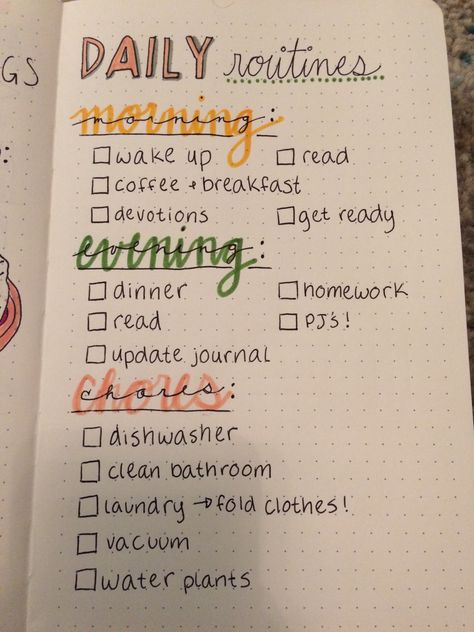 GS
DAILY routines
morning:
wake up read
coffee + breakfast
devotions get ready
evening:
dinner homework
read PJ's!
update journal
chores:
dishwasher
clean bathroom
laundry → fold clothes!
vacuum
water plants